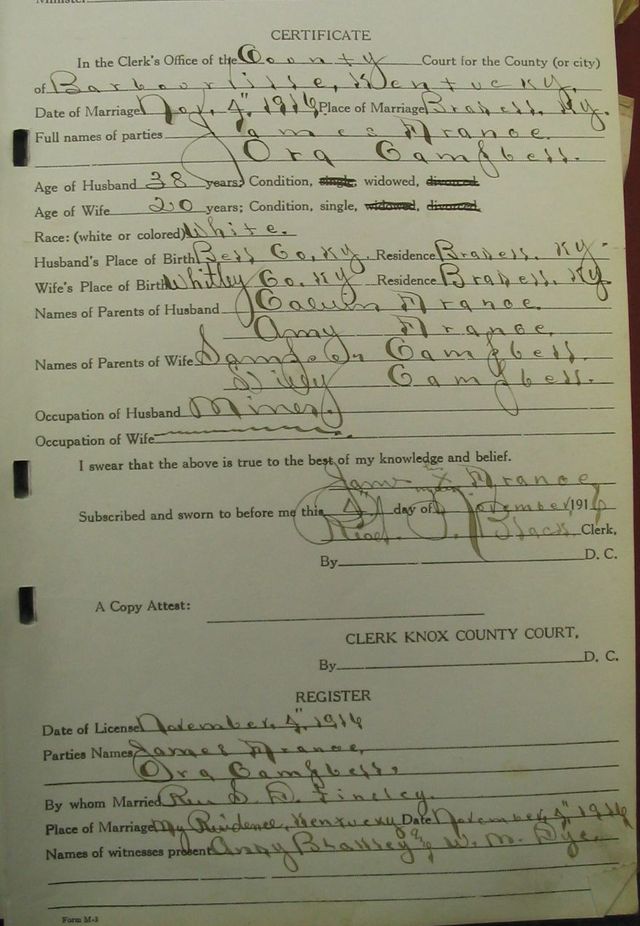 CERTIFICATE
In the Clerk's Office of the County Court for the County (or city)
of Barbourville, Kentucky.
Date of Marriage Nov. 4", 1916 Place of Marriage Braless. Ky.
Full names of parties James
Ora Campbell.
Age of Husband 38 years; Condition, single, widowed, divorced
Age of Wife 20 years; Condition, single, widowed, divorced
Race: (white or colored) White.
Husband's Place of Birth Bell Co, Ky. Residence Ky.
Wife's Place of Birth Whitley Co. Ky Residence Ky
Names of Parents of Husband Calvin
Amy
Names of Parents of Wife Campbell.
Campbell.
Occupation of Husband Miner.
Occupation of Wife
I swear that the above is true to the best of my knowledge and belief.
X
Subscribed and sworn to before me this 4" day of November, 1916
Read P. Black Clerk,
By D. C.
A Copy Attest:
CLERK KNOX COUNTY COURT,
By D. C.
REGISTER
Date of License November, 4", 1916
Parties Names James
Ora Campbell,
By whom Married Rev Finley.
Place of Marriage My Residence, Kentucky Date November, 4" 1916
Names of witnesses present W. M. Dye.
Form M-3